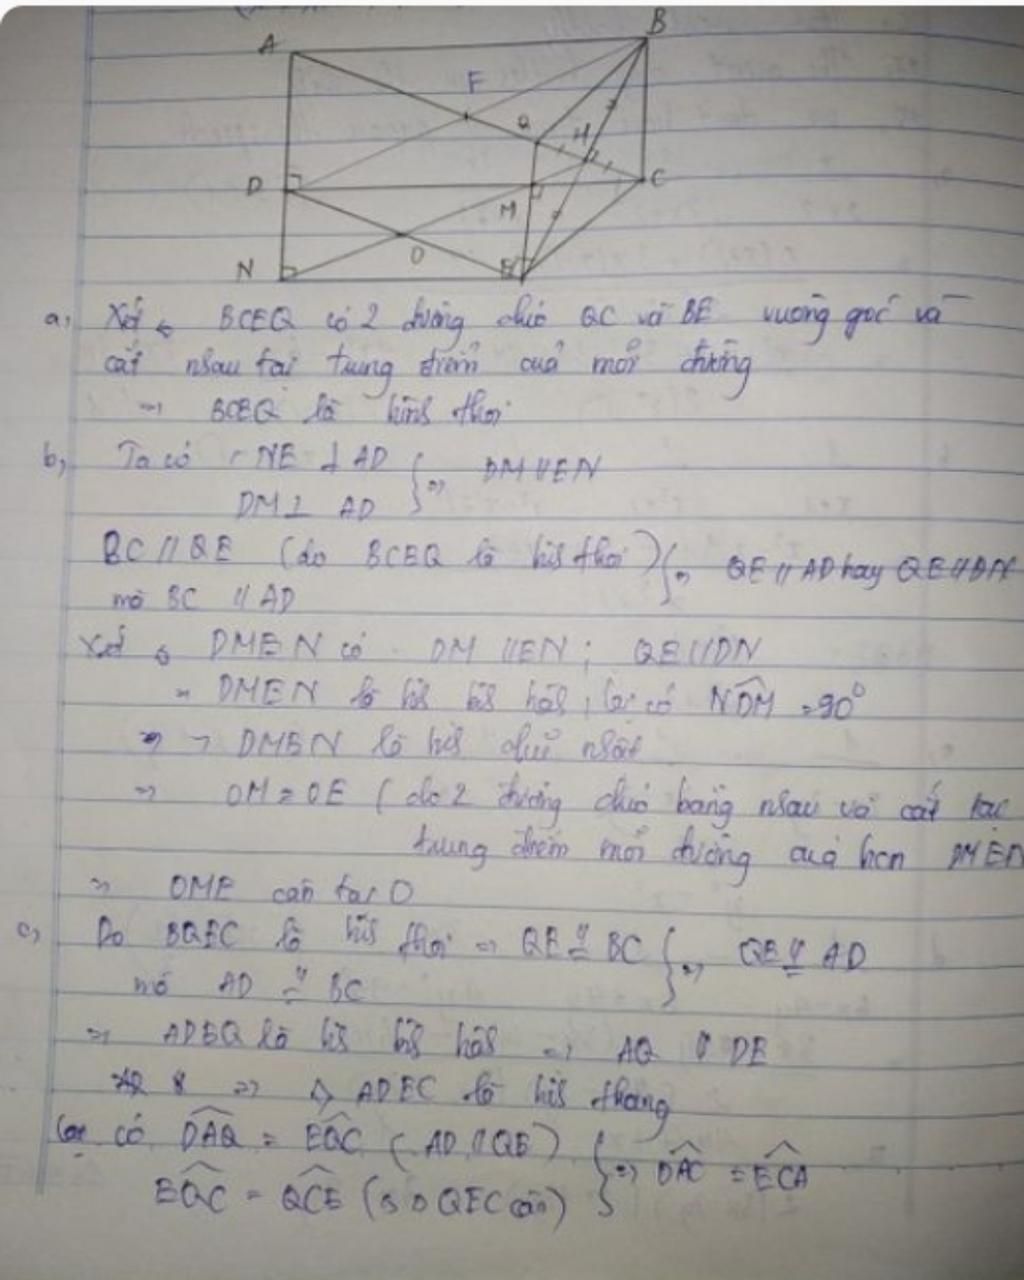 A
B
F
Q
H
D
C
M
N
O
E
a, Xét ⬦ BCEQ có 2 đường chéo QC và BE vuông góc và
cắt nhau tại trung điểm của mỗi đường
=> BCEQ là hình thoi
b, Ta có NE ⊥ AD } => DM // EN
DM ⊥ AD
BC // QE (do BCEQ là hình thoi) } => QE // AD hay QE // DN
mà BC // AD
Xét ⬦ DMEN có DM // EN ; QE // DN
=> DMEN là hình bình hành ; lại có NDM = 90⁰
=> DMEN là hình chữ nhật
=> OM = OE ( do 2 đường chéo bằng nhau và cắt tại
trung điểm mỗi đường của hcn DMEN
=> OME cân tại O
c, Do BQEC là hình thoi => QE // = BC } => QE // = AD
mà AD // = BC
=> ADEQ là hình bình hành => AQ // DE
=> ADEC là hình thang
Lại có DAQ = EQC ( AD // QE ) } => DAC = ECA
EQC = QCE ( Δ QEC cân )